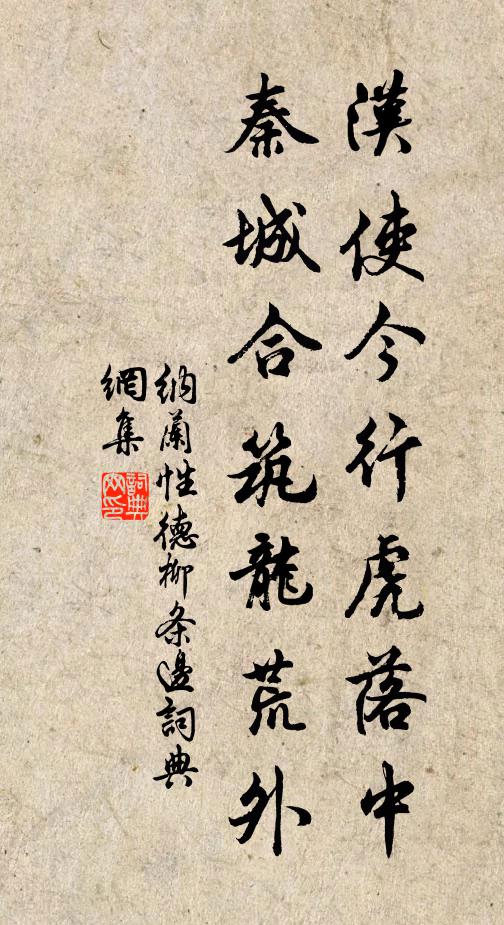 漢使今行虎落中
秦城合筑龍荒外
納蘭性德柳条邊詞典
網集
詞典